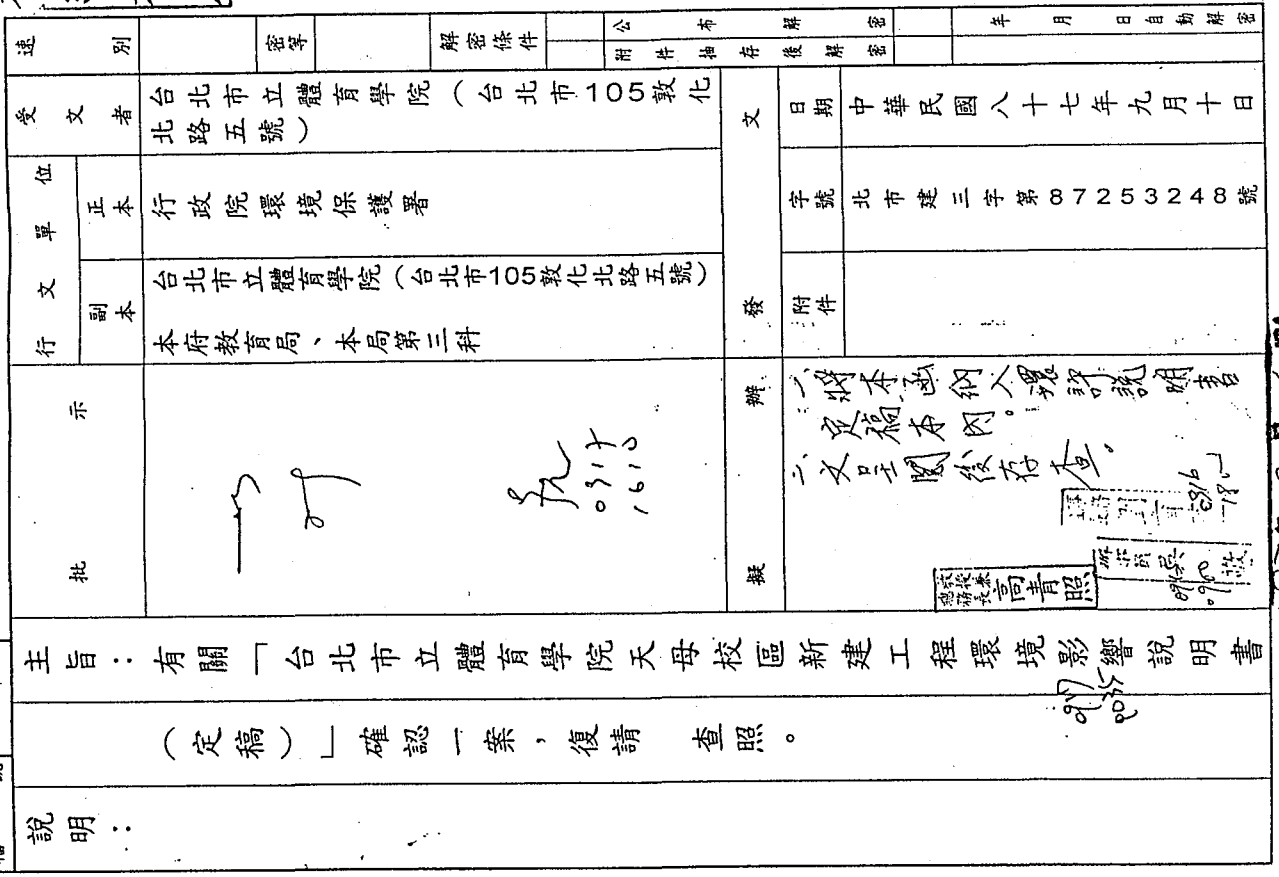 速別
密等
解密條件
公布解密
附件抽存後解密
年 月 日自動解密
受文者
台北市立體育學院(台北市105敦化
北路五號)
行文單位
正本
行政院環境保護署
副本
台北市立體育學院(台北市105敦化北路五號)
本府教育局、本局第三科
發文
日期
中華民國八十七年九月十日
字號
北市建三字第87253248號
附件
批示
0917
1610
擬辦
一、將本函納入環評說明書
定稿本內。
二、文呈閱後存查。
教授兼
總務長
高青照
主旨:有關「台北市立體育學院天母校區新建工程環境影響說明書
(定稿)」確認一案,復請 查照。
說明: